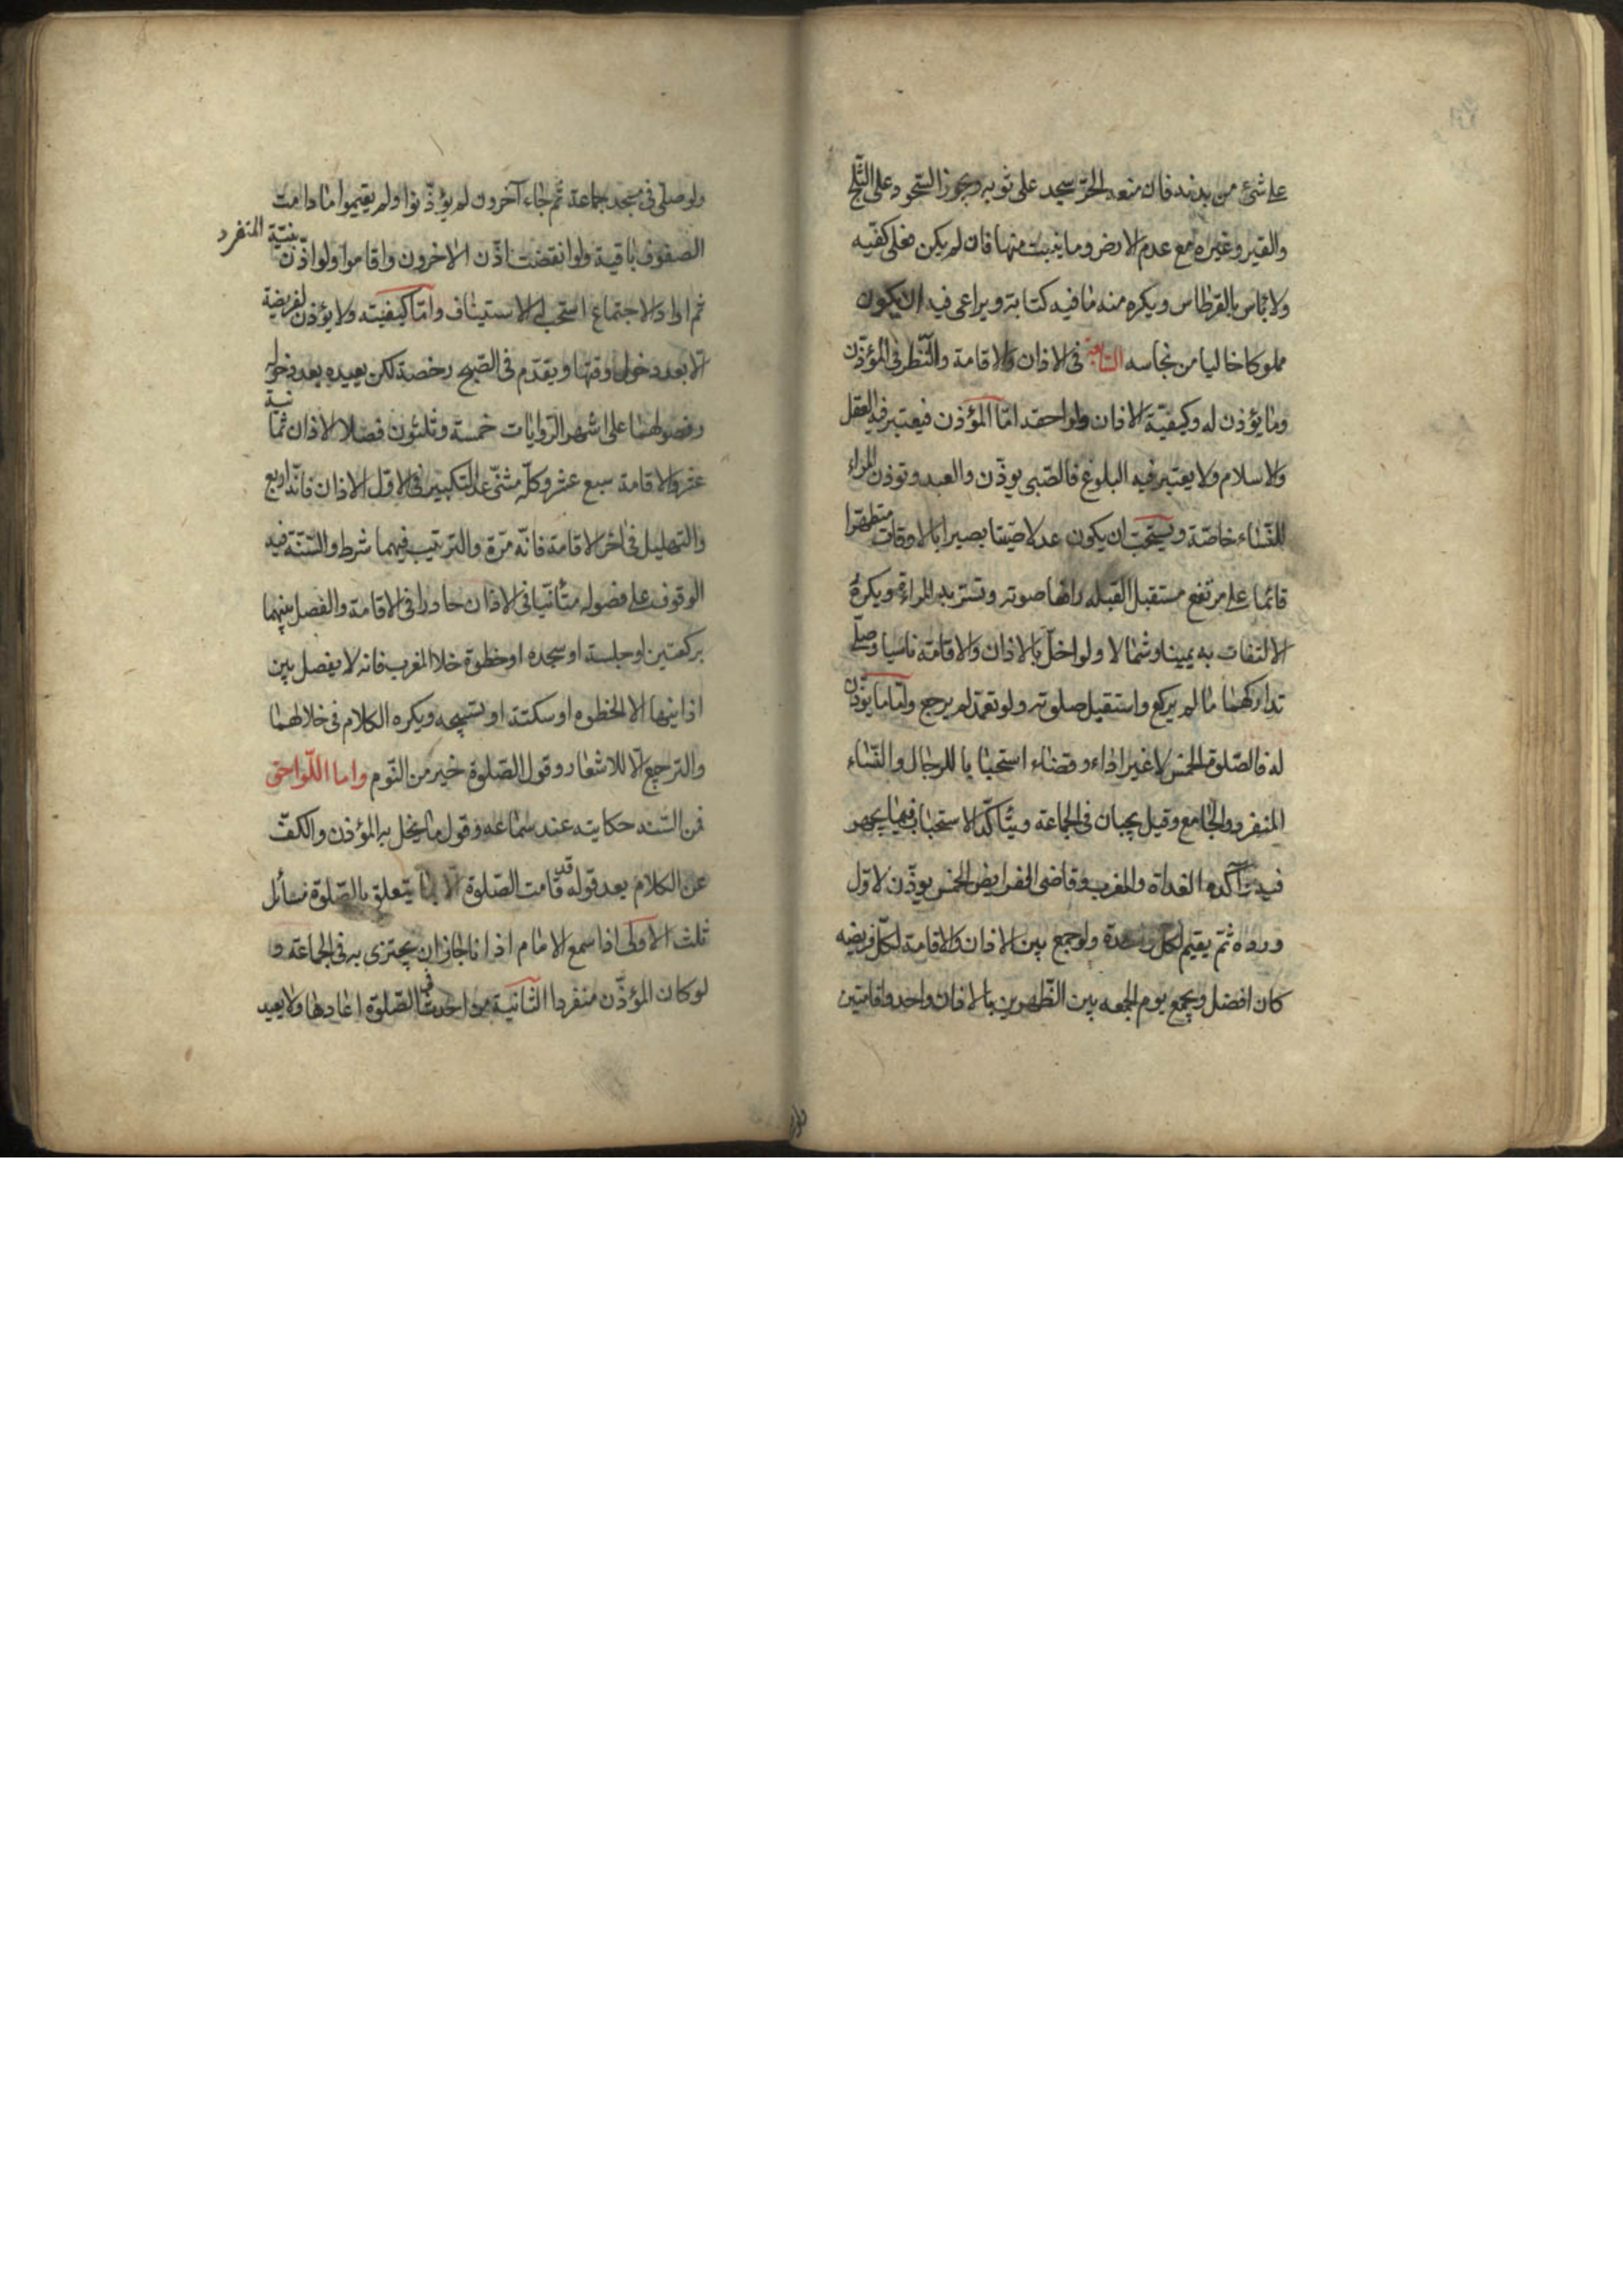 على شئ من بدنه فان منعه الحر سجد على ثوبه ويجوز السجود على الثلج
والقير وغيره مع عدم الارض وما ينبت منها فان لم يكن فعلى كفيه
ولا باس بالقرطاس ويكره منه ما فيه كتابة ويراعى فيه ان يكون
مملوكا خاليا من نجاسه السابعة فى الاذان والاقامة والنظر فى المؤذن
وما يؤذن له وكيفية الاذان ولواحقه اما المؤذن فيعتبر فيه العقل
والاسلام ولا يعتبر فيه البلوغ فالصبى يوذن والعبد وتوذن المراة
للنساء خاصة ويستحب ان يكون عدلا صيتا بصيرا بالاوقات متطهرا
قائما على مرتفع مستقبل القبله رافعا صوته وتستر به المراة ويكره
الالتفات به يمينا وشمالا ولو اخل بالاذان والاقامة ناسيا وصلى
تداركهما ما لم يركع واستقبل صلوته ولو تعمد لم يرجع واما ما يوذن
له فالصلوة الخمس لا غير اداء وقضاء استحبابا للرجال والنساء
المنفرد والجامع وقيل يجبان فى الجماعة ويتاكد الاستحباب فيما يجهر
فيه وآكده الغداة والمغرب وقاضى الفرايض الخمس يوذن لاول
ورده ثم يقيم لكل واحدة ولو جمع بين الاذان والاقامة لكل فريضه
كان افضل ويجمع يوم الجمعه بين الظهرين بالاذان واحد واقامتين
ولو صلى فى مسجد جماعة ثم جاء آخرون لم يؤذنوا ولم يقيموا ما دامت
الصفوف باقية ولو انفضت اذن الاخرون واقاموا ولو اذن بنية المنفرد
ثم اراد الاجتماع استحب له الاستيناف واما كيفيته ولا يؤذن لفريضة
الا بعد دخول وقتها ويقدم فى الصبح رخصة لكن يعيده بعد دخوله
وفصولهما على اشهر الروايات خمسة وثلثون فصلا الاذان ثمانية
عشر والاقامة سبع عشر وكله مثنى عدا التكبير فى الاول الاذان فانه اربع
والتهليل فى اخر الاقامة فانه مرة والترتيب فيهما شرط والسنة فيه
الوقوف على فصوله متأنيا فى الاذان حادرا فى الاقامة والفصل بينهما
بركعتين او جلسة او سجده او خطوة خلا المغرب فانه لا يفصل بين
اذانيها الا الخطوه او سكتة او بتسبيحه ويكره الكلام فى خلالهما
والترجيع الا للاشعار وقول الصلوة خير من النوم واما اللواحق
فمن السنه حكايته عند سماعه وقول ما يخل به المؤذن والكف
عن الكلام بعد قوله قد قامت الصلوة الا بما يتعلق بالصلوة مسائل
ثلث الاولى اذا سمع الامام اذانا جاز ان يجتزى به فى الجماعة و
لو كان المؤذن منفردا الثانية من احدث فى الصلوة اعادها ولا يعيد